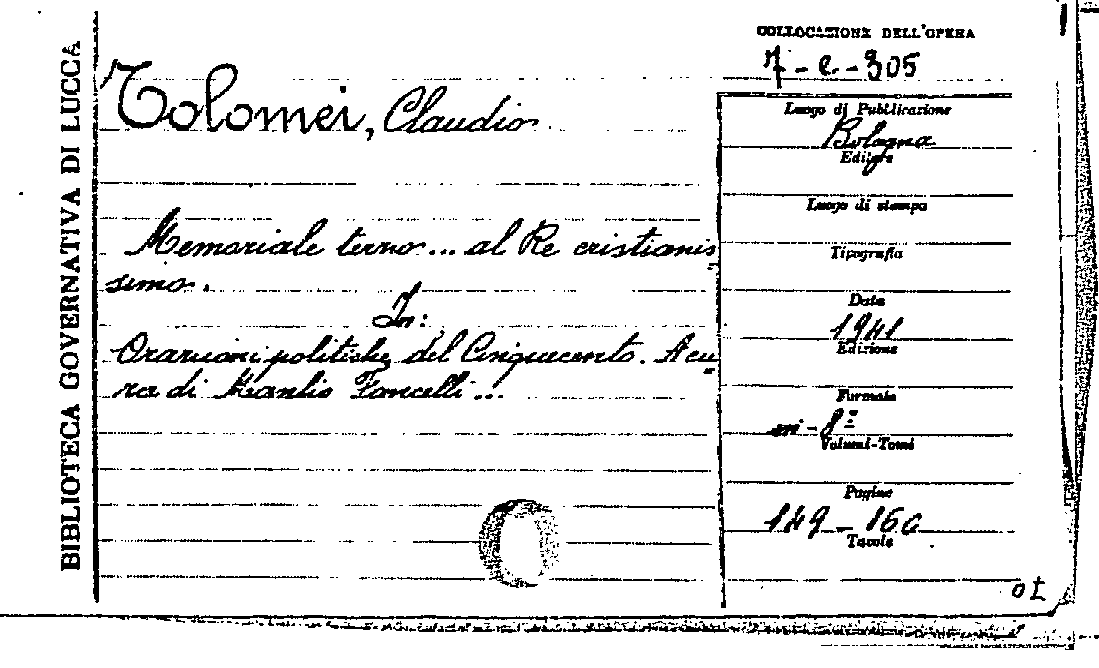 BIBLIOTECA GOVERNATIVA DI LUCCA
COLLOCAZIONE DELL'OPERA
7-e-305
Tolomei, Claudio
Memoriale terno... al Re cristianis
simo.
In:
Orazioni politiche del Cinquecento. A cu
ra di Manlio Fancelli...
Luogo di Pubblicazione
Bologna
Editore
Luogo di stampa
Tipografia
Data
1941
Edizione
Formato
in-8º
Volumi-Tomi
Pagine
149-160
Tavole